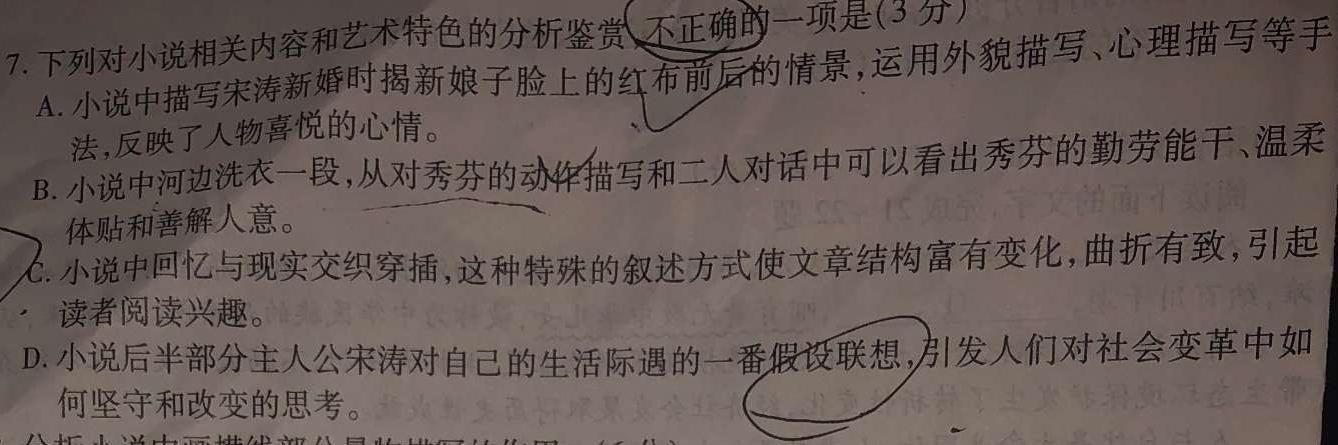 7. 下列对小说相关内容和艺术特色的分析鉴赏,不正确的一项是(3分)
A. 小说中描写宋涛新婚时揭新娘子脸上的红布前后的情景,运用外貌描写、心理描写等手
法,反映了人物喜悦的心情。
B. 小说中河边洗衣一段,从对秀芬的动作描写和二人对话中可以看出秀芬的勤劳能干、温柔
体贴和善解人意。
C. 小说中回忆与现实交织穿插,这种特殊的叙述方式使文章结构富有变化,曲折有致,引起
读者阅读兴趣。
D. 小说后半部分主人公宋涛对自己的生活际遇的一番假设联想,引发人们对社会变革中如
何坚守和改变的思考。